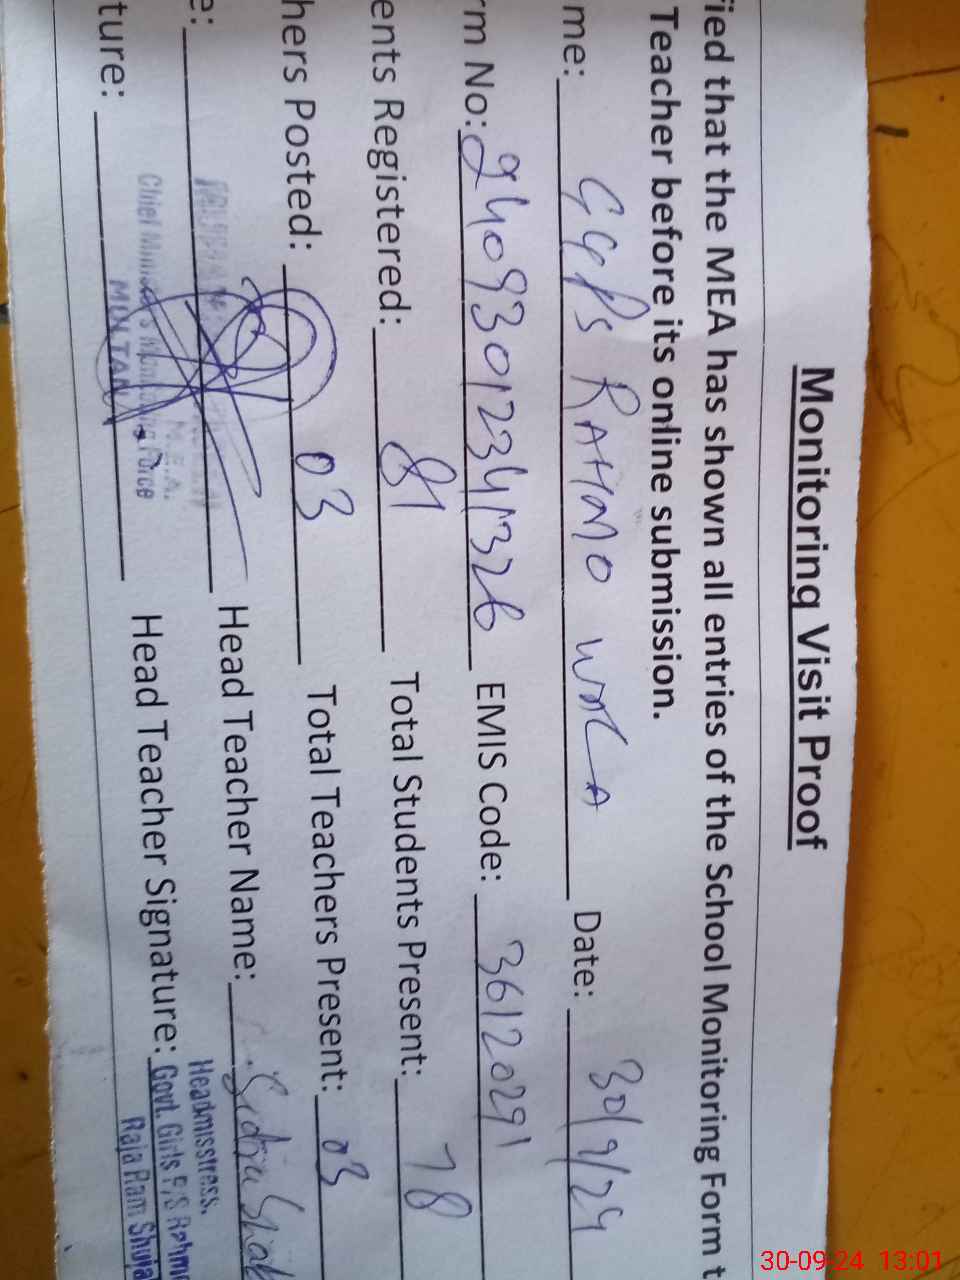 Monitoring Visit Proof
ied that the MEA has shown all entries of the School Monitoring Form t
Teacher before its online submission.
me: GGPS RAHMO WALA Date: 30/9/24
rm No: 24093012341326 EMIS Code: 36120291
ents Registered: 81 Total Students Present: 78
hers Posted: 03 Total Teachers Present: 03
e: Head Teacher Name: Sidra
M.E.A.
ture: Chief Minister's Monitoring Force
MULTAN
Head Teacher Signature:
Headmisstress.
Govt. Girls P/S Rahm
Raja Ram Shuja
30-09-24 13:01